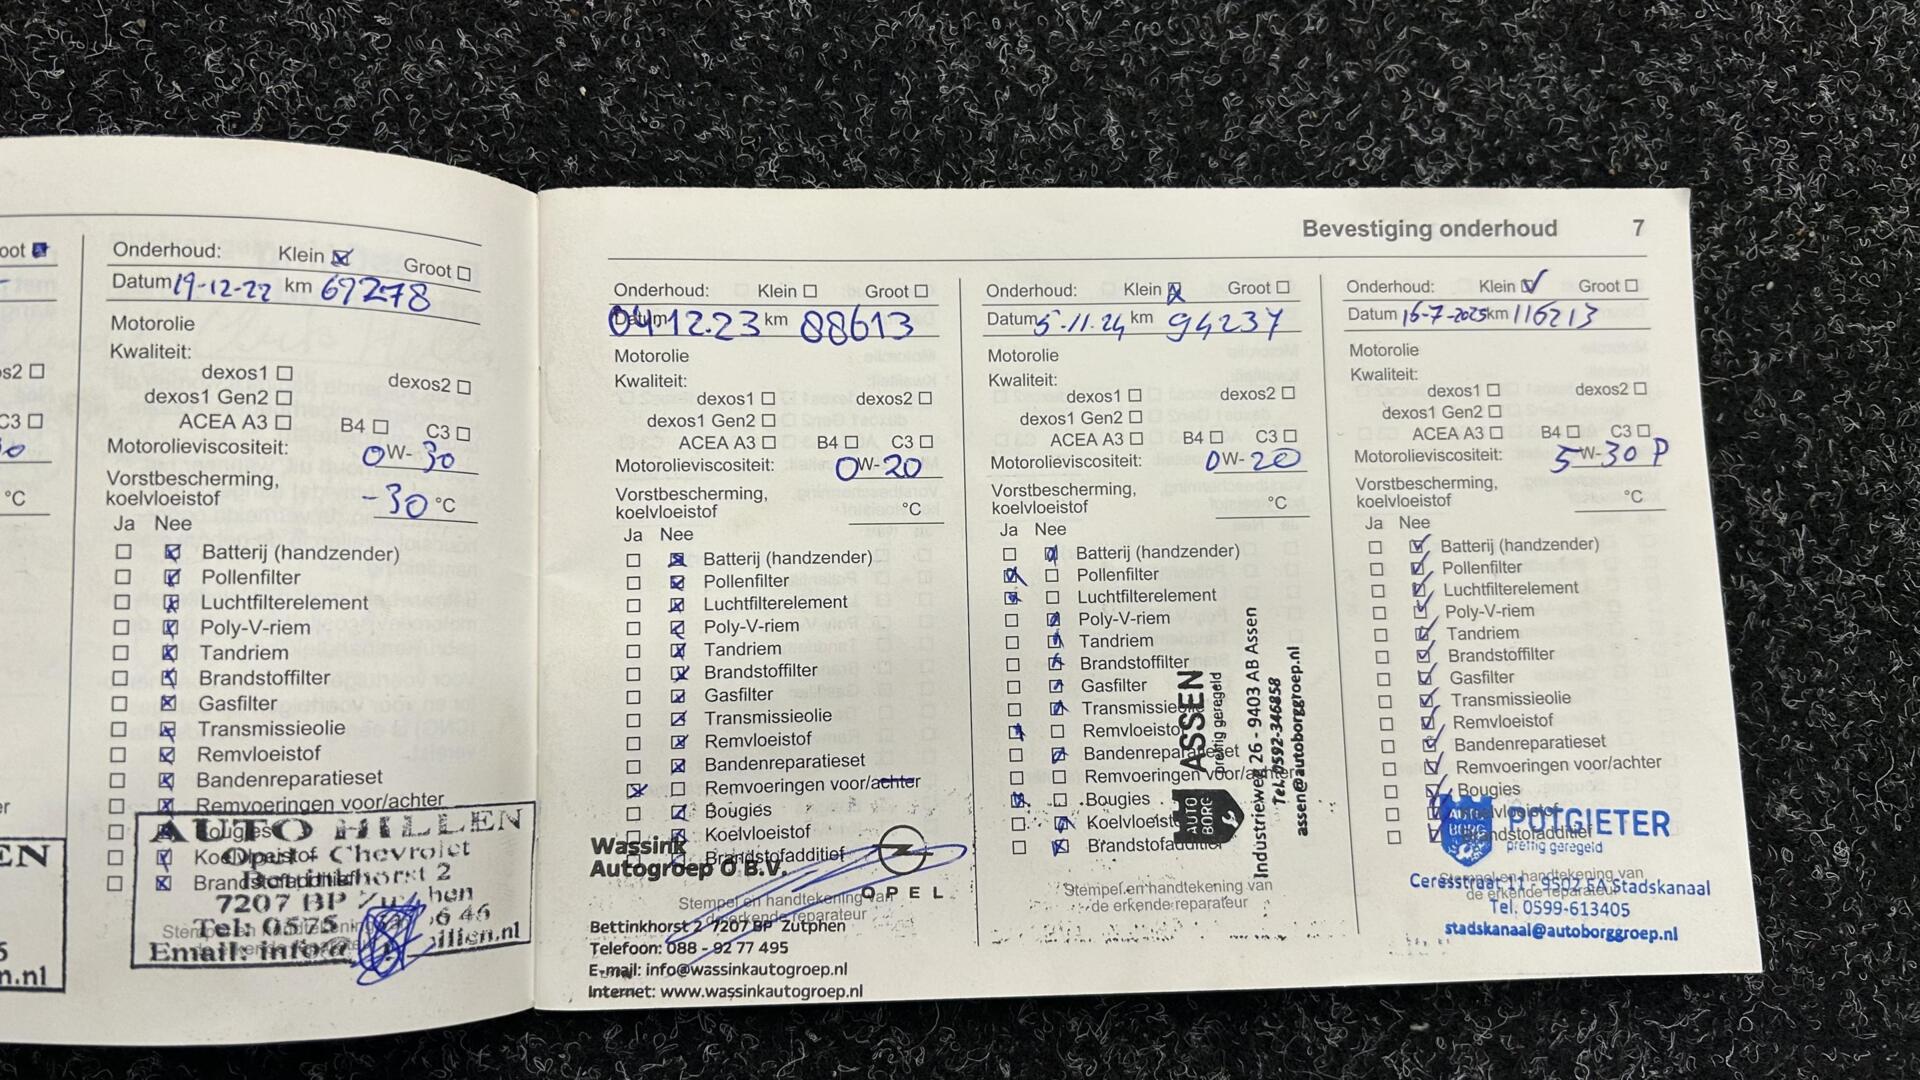 oot
s2
C3
°C
EN
n.nl
Onderhoud: Klein Groot
Datum 19-12-22 km 67278
Motorolie
Kwaliteit:
dexos1 dexos2
dexos1 Gen2
ACEA A3 B4 C3
Motorolieviscositeit: 0W-30
Vorstbescherming,
koelvloeistof -30 °C
Ja Nee
Batterij (handzender)
Pollenfilter
Luchtfilterelement
Poly-V-riem
Tandriem
Brandstoffilter
Gasfilter
Transmissieolie
Remvloeistof
Bandenreparatieset
Remvoeringen voor/achter
Bougies
Koelvloeistof
Brandstofadditief
AUTO HILLEN
Opel - Chevrolet
Bettinkhorst 2
7207 BP Zutphen
Tel: 0575
Email: info
Bevestiging onderhoud 7
Onderhoud: Klein Groot
Datum 04.12.23 km 88613
Motorolie
Kwaliteit:
dexos1 dexos2
dexos1 Gen2
ACEA A3 B4 C3
Motorolieviscositeit: 0W-20
Vorstbescherming,
koelvloeistof °C
Ja Nee
Batterij (handzender)
Pollenfilter
Luchtfilterelement
Poly-V-riem
Tandriem
Brandstoffilter
Gasfilter
Transmissieolie
Remvloeistof
Bandenreparatieset
Remvoeringen voor/achter
Bougies
Koelvloeistof
Brandstofadditief
Wassink
Autogroep O B.V.
OPEL
Stempel en handtekening van
de erkende reparateur
Bettinkhorst 2 7207 BP Zutphen
Telefoon: 088 - 92 77 495
E-mail: info@wassinkautogroep.nl
Internet: www.wassinkautogroep.nl
Onderhoud: Klein Groot
Datum 5-11-24 km 94237
Motorolie
Kwaliteit:
dexos1 dexos2
dexos1 Gen2
ACEA A3 B4 C3
Motorolieviscositeit: 0W-20
Vorstbescherming,
koelvloeistof °C
Ja Nee
Batterij (handzender)
Pollenfilter
Luchtfilterelement
Poly-V-riem
Tandriem
Brandstoffilter
Gasfilter
Transmissieolie
Remvloeistof
Bandenreparatieset
Remvoeringen voor/achter
Bougies
Koelvloeistof
Brandstofadditief
AUTO
BORG
ASSEN
prettig geregeld
Industrieweg 26 - 9403 AB Assen
Tel. 0592-346858
assen@autoborggroep.nl
Stempel en handtekening van
de erkende reparateur
Onderhoud: Klein Groot
Datum 16-7-2025 km 116213
Motorolie
Kwaliteit:
dexos1 dexos2
dexos1 Gen2
ACEA A3 B4 C3
Motorolieviscositeit: 5W-30 P
Vorstbescherming,
koelvloeistof °C
Ja Nee
Batterij (handzender)
Pollenfilter
Luchtfilterelement
Poly-V-riem
Tandriem
Brandstoffilter
Gasfilter
Transmissieolie
Remvloeistof
Bandenreparatieset
Remvoeringen voor/achter
Bougies
Koelvloeistof
Brandstofadditief
AUTO
BORG
POTGIETER
prettig geregeld
Stempel en handtekening van
de erkende reparateur
Ceresstraat 11 - 9502 EA Stadskanaal
Tel. 0599-613405
stadskanaal@autoborggroep.nl